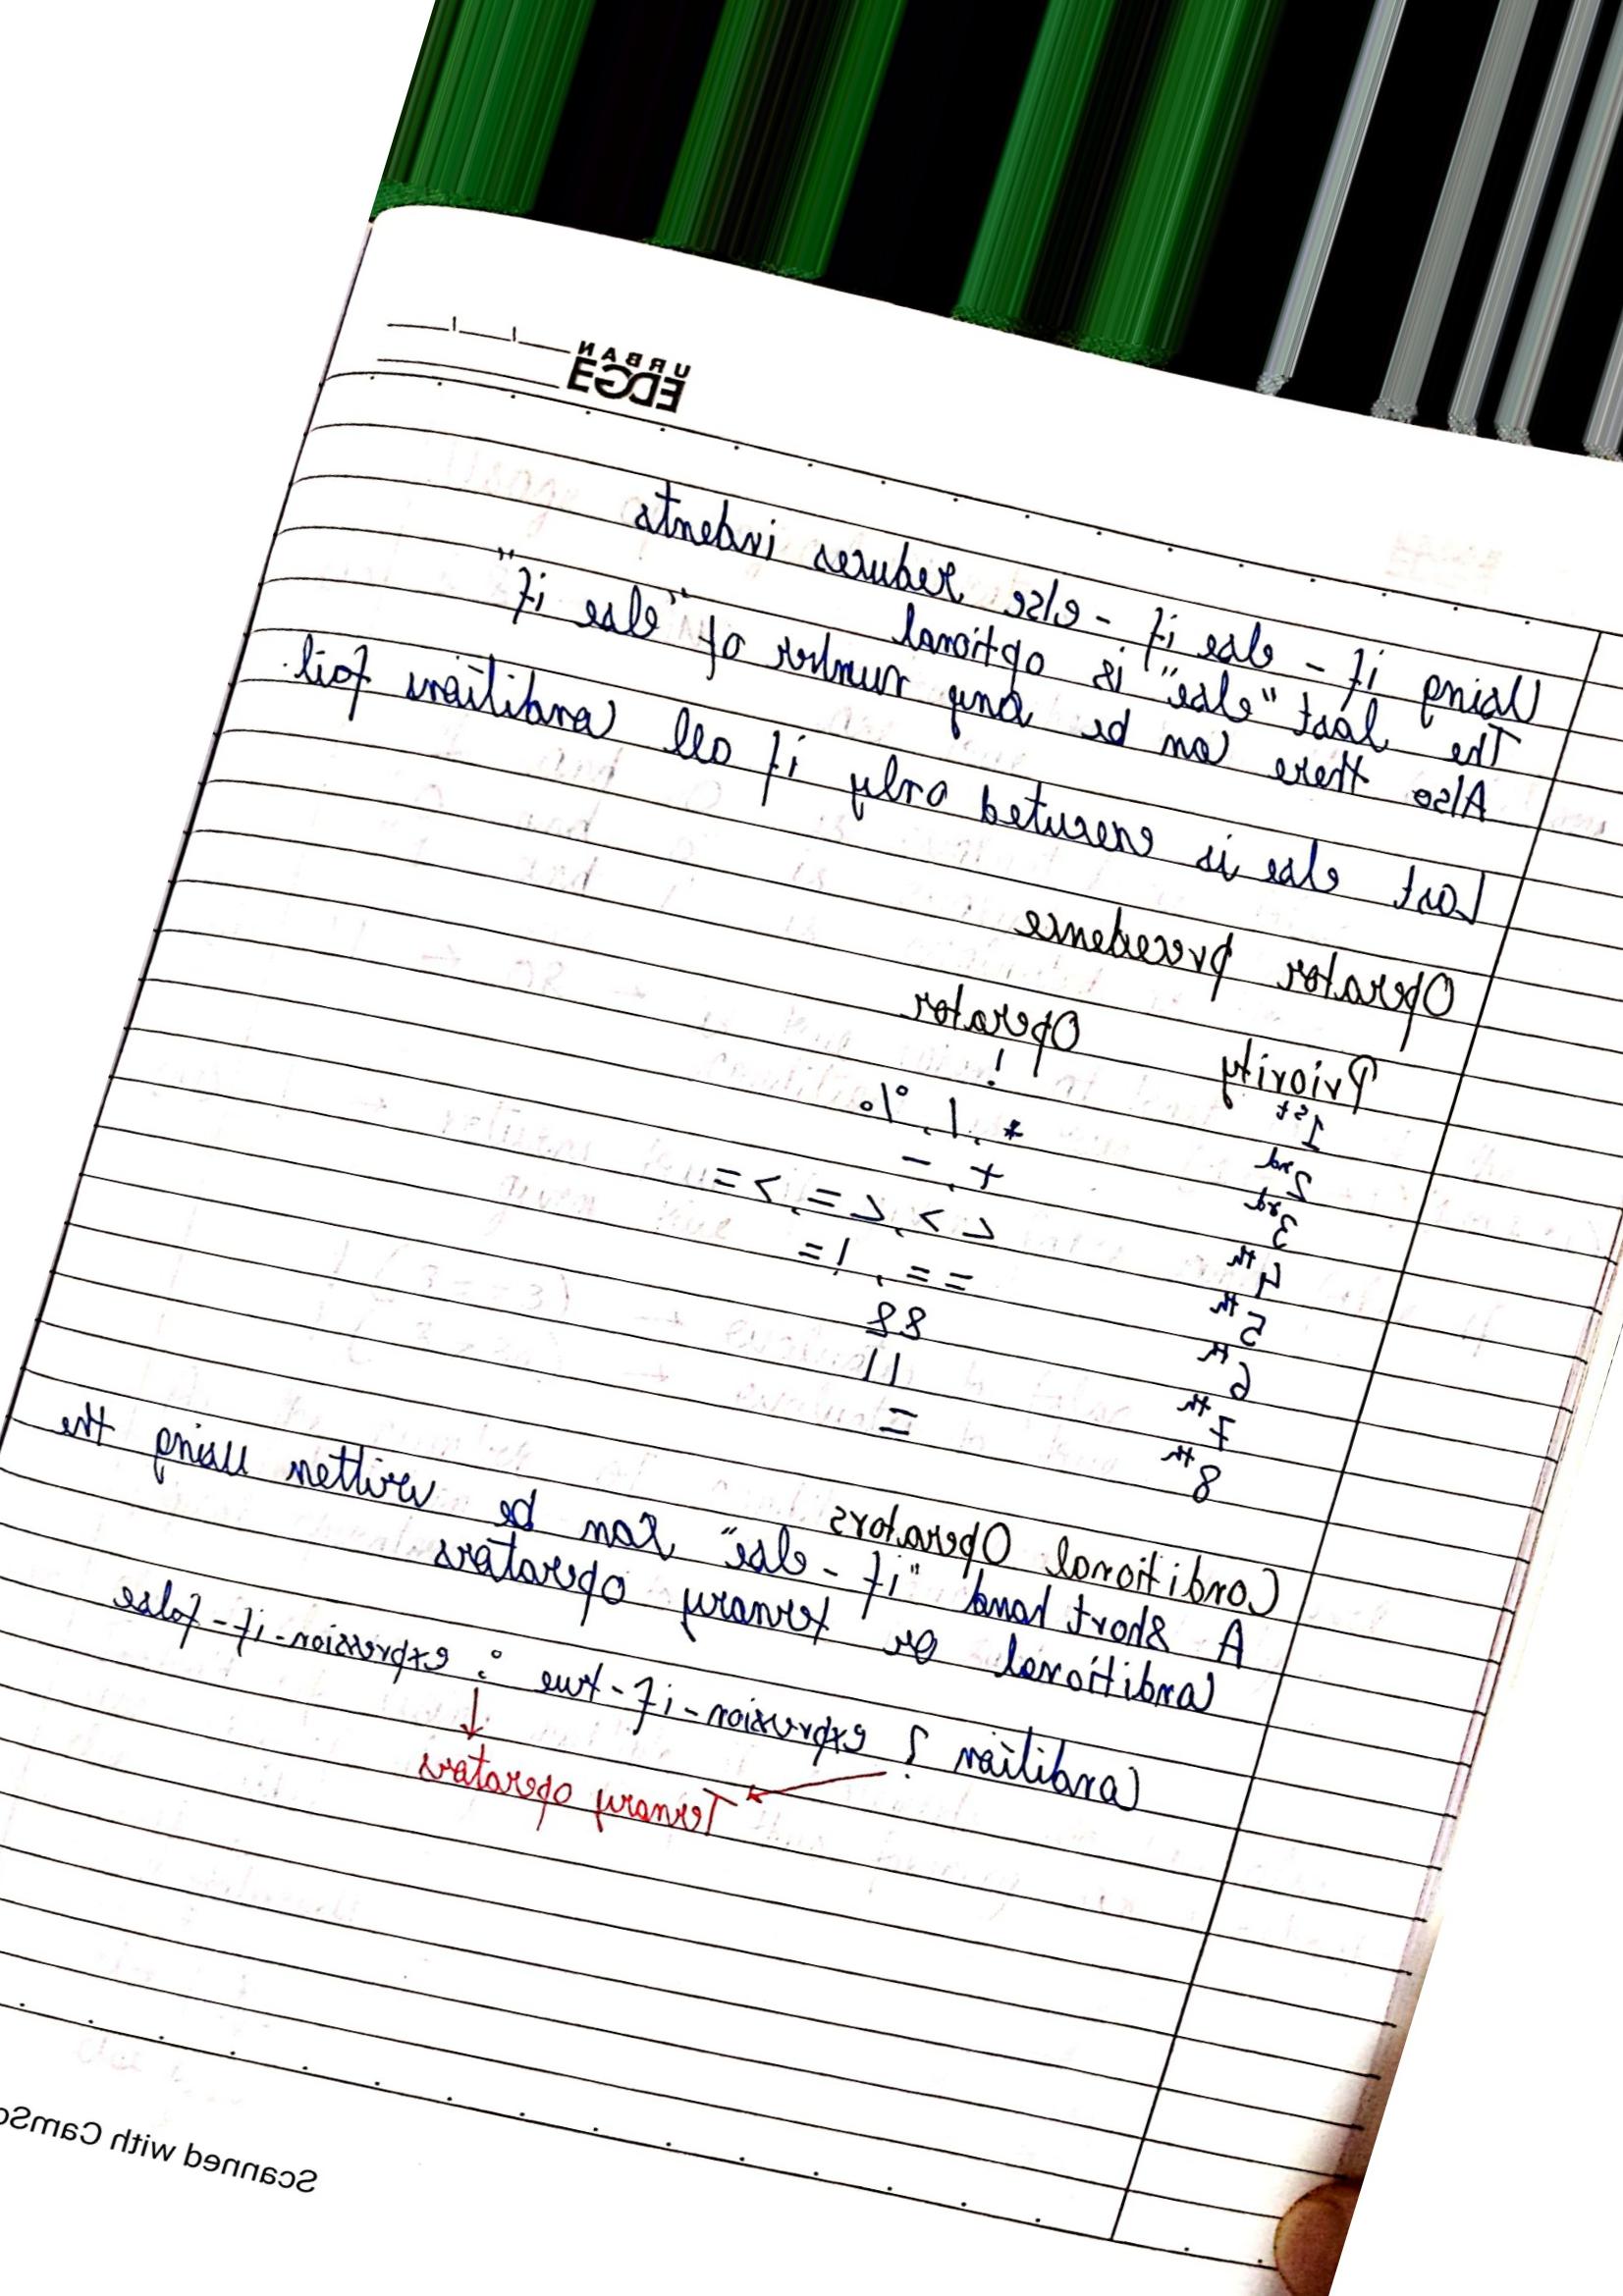 URBAN
EDGE
Using if - else if - else reduces indents
The last "else" is optional
Also there can be any number of "else if"
Last else is executed only if all conditions fail.
Operator precedence
Priority Operator
1st !
2nd *, /, %
3rd +, -
4th < >, < =, > =
5th = =, ! =
6th &&
7th ||
8th =
Conditional Operators
A short hand "if - else" kan be written using the
conditional or ternary operators
Condition ? expression-if-true : expression-if-false
Ternary operators
Scanned with CamSc